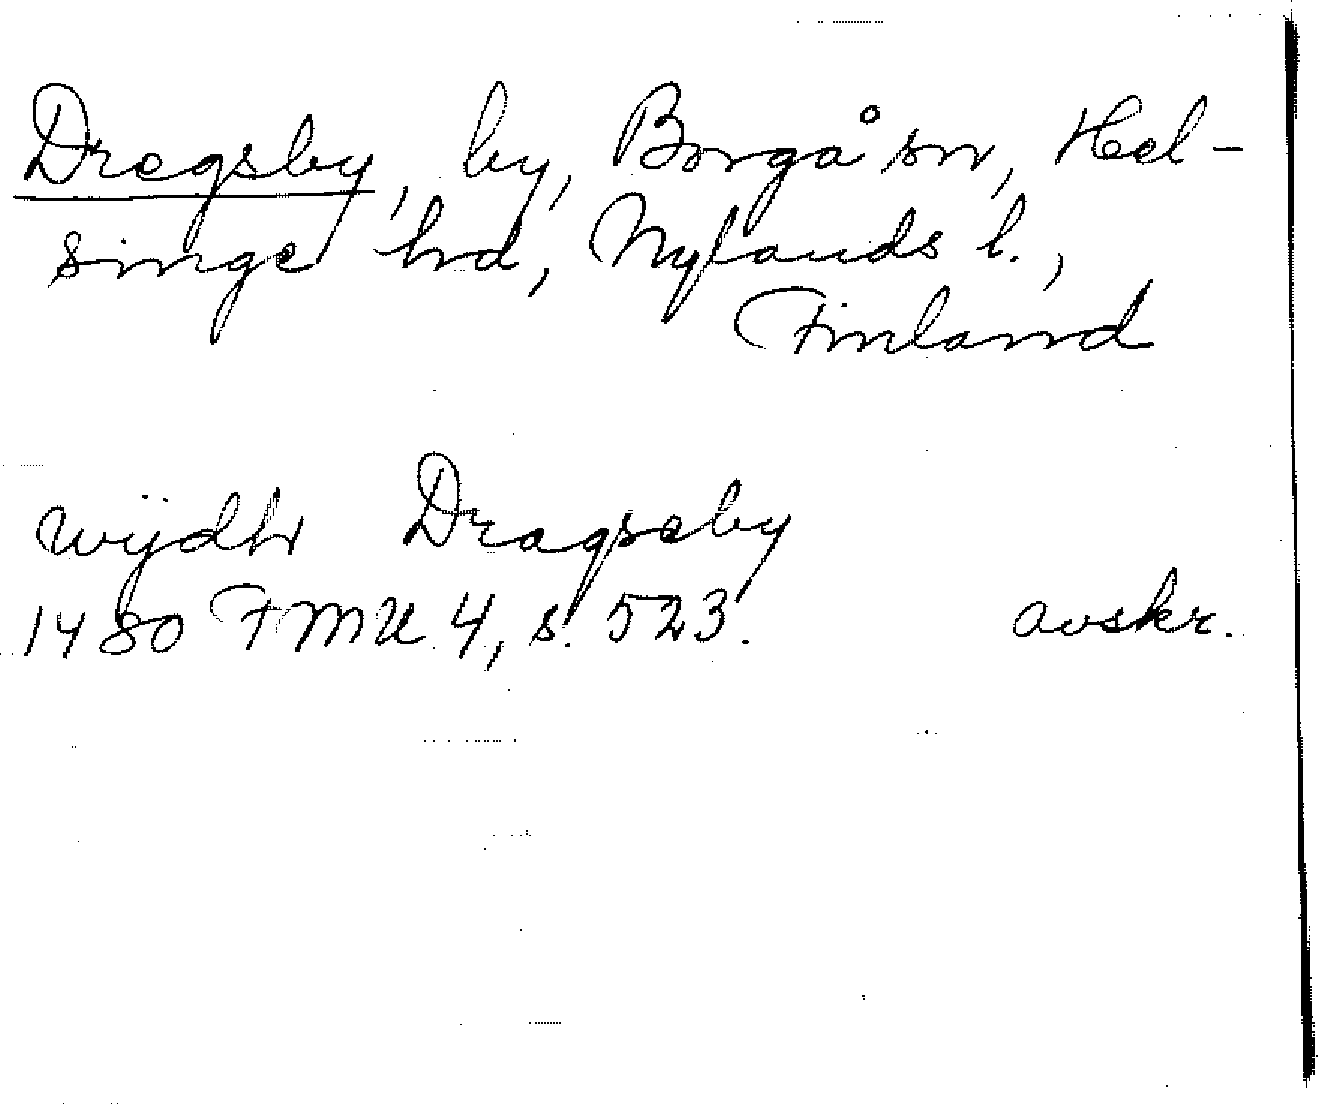 Dregsby, by, Borgå sn, Hel-
singe hd, Nylands l.,
Finland
wÿdh Dragsby
1480 FMU 4, s. 523. avskr.